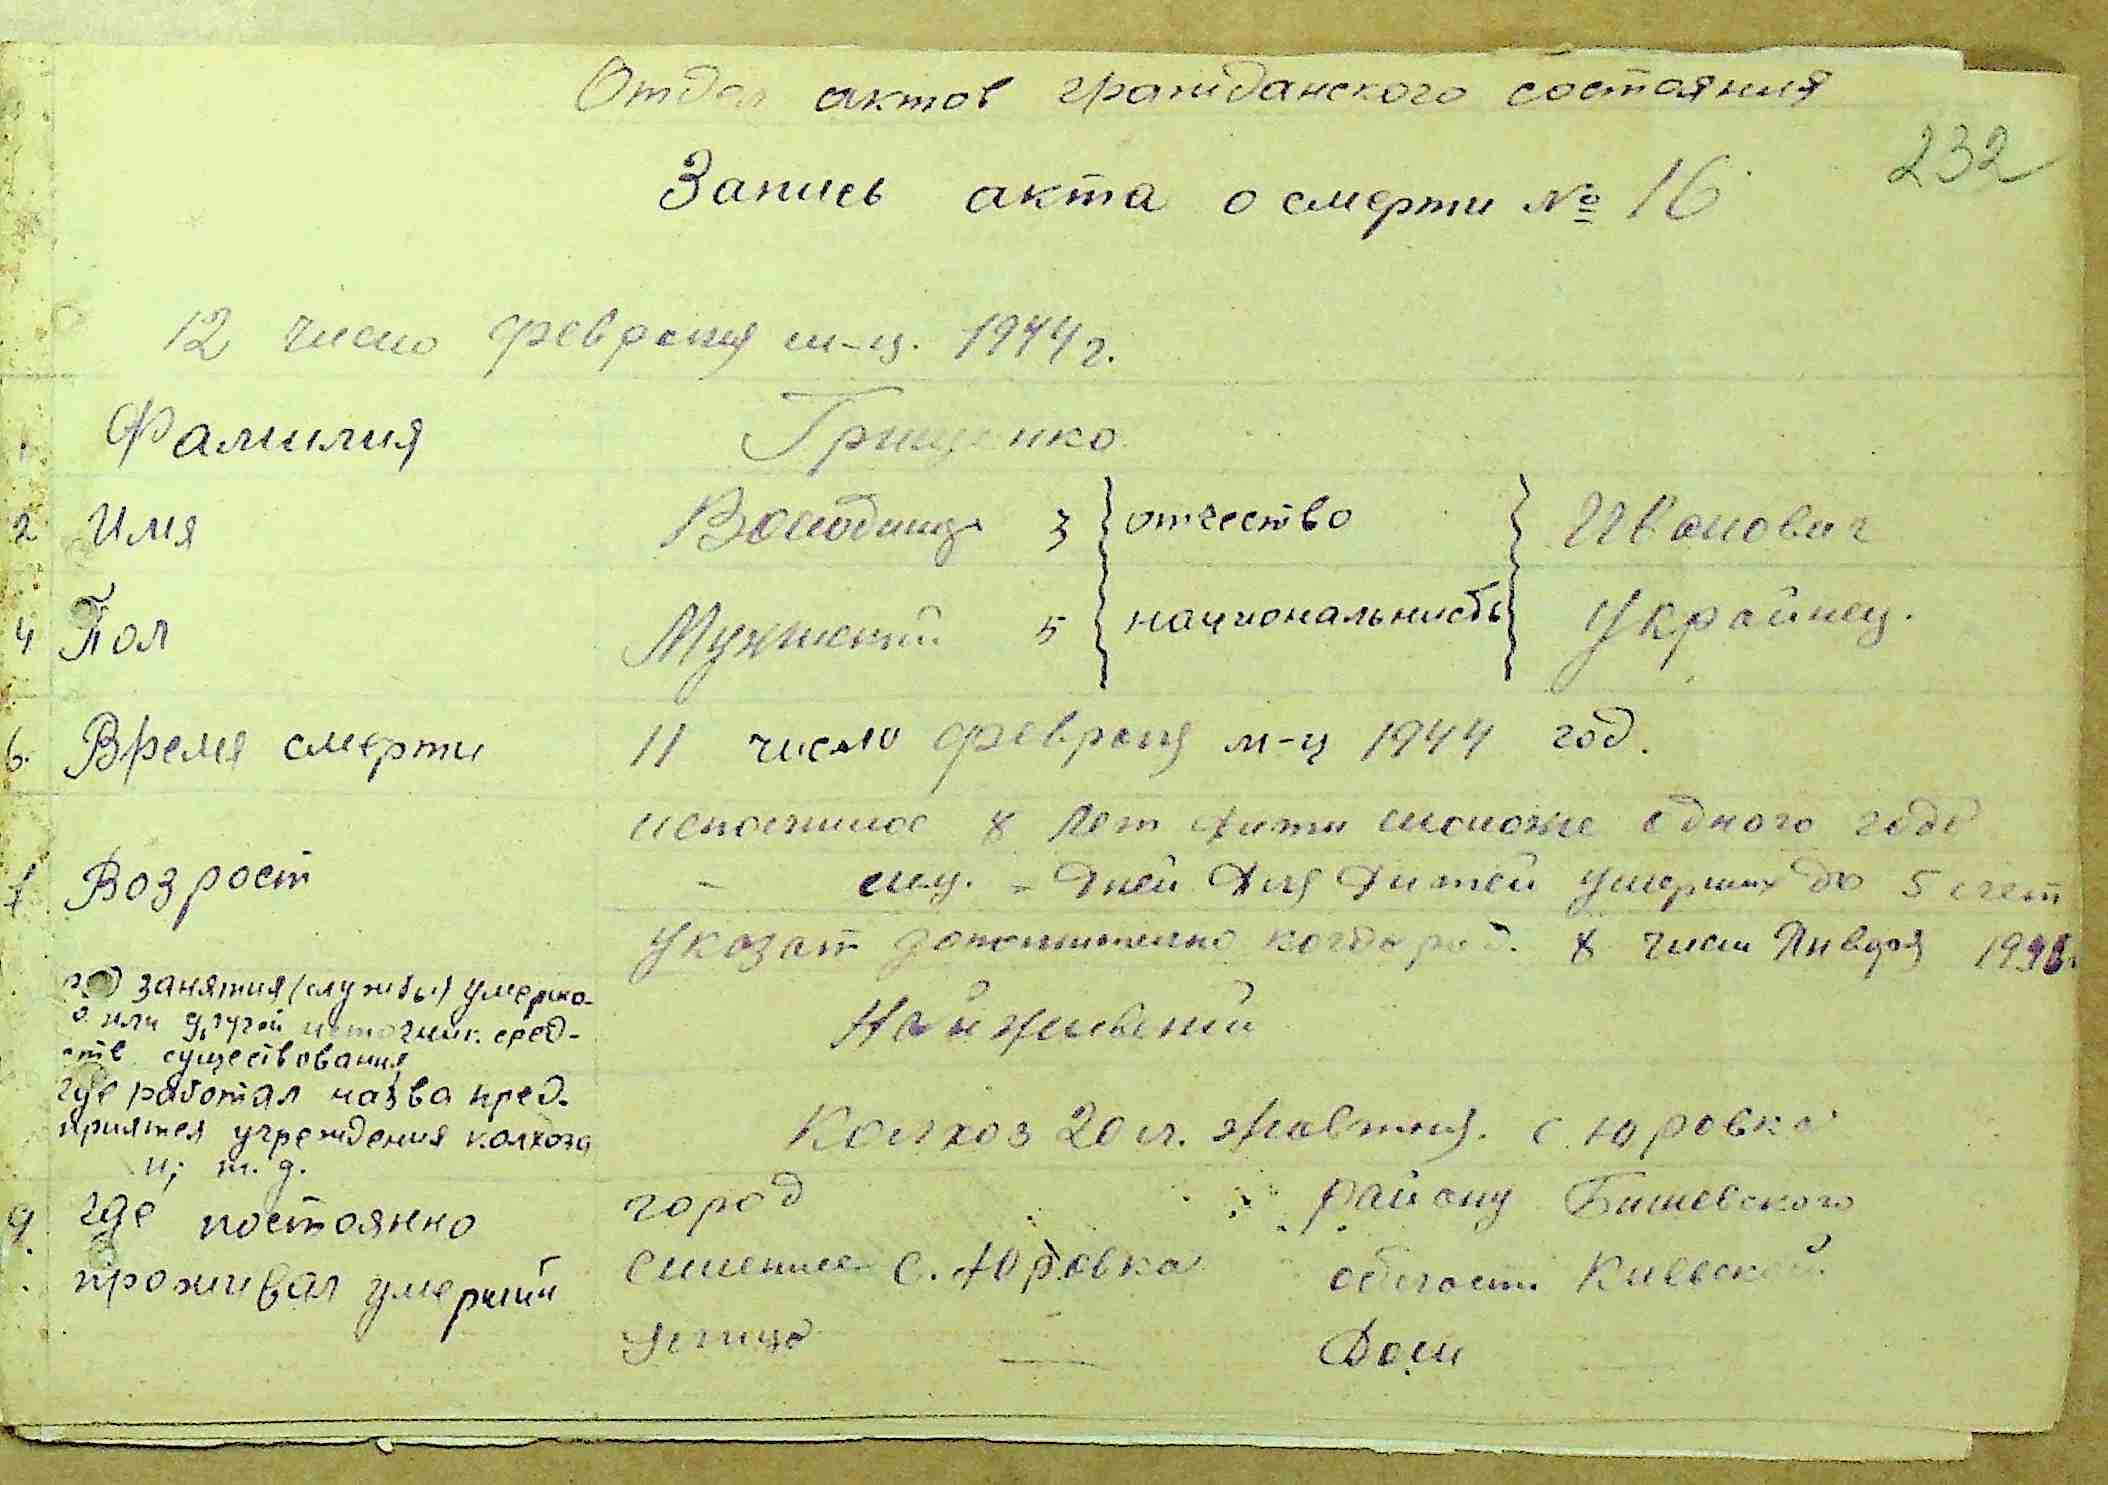 Отдел актов гражданского состояния
232
Запись акта о смерти № 16
12 число февраля м-ц. 1944 г.
1 Фамилия Грищенко
2 Имя Володимир 3 отчество Иванович
4 Пол Мужский 5 национальность Украйнец.
6. Время смерти 11 число февраля м-ц 1944 год.
исполнилос 8 лет дити моложе одного года
7 Возрост - м-ц. - дней Для Дитей умерших до 5 лет
Указат дополнительно когда род. 8 числа Января
род занятия (службы) умершо-
о или другой источник сред-
ств существования
На иждивении
где работал назва пред-
приятея учреждения колхоза
и; т. д.
Колхоз 20 л. жовтня. с. Юровка
9. где постоянно город району Бишевского
проживал умерший с. Юровка области Киевской
улица — Дом —